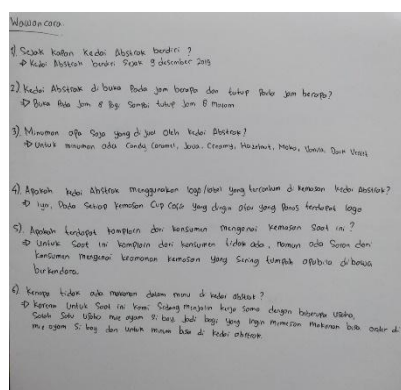 Wawancara.
1). Sejak kapan Kedai Abstrak berdiri ?
→ Kedai Abstrak berdiri Sejak 9 desember 2019
2). Kedai Abstrak di buka Pada jam berapa dan tutup Pada jam berapa?
→ Buka Pada Jam 8 Pagi Sampai tutup Jam 6 Malam
3). Minuman apa Saja yang di jual oleh kedai Abstrak?
→ Untuk minuman ada Candy, Caramel, Java, Creamy, Hazelnut, Moka, Vanila, Dark
4). Apakah kedai Abstrak menggunakan logo/label yang tercantum di kemasan kedai Abstrak?
→ Iya, Pada Setiap kemasan Cup yang dingin atau yang Panas terdapat logo
5). Apakah terdapat komplain dari konsumen mengenai kemasan Saat ini ?
→ Untuk Saat ini komplain dari konsumen tidak ada, namun ada Saran dari
konsumen mengenai keamanan kemasan yang Sering tumpah apabila dibawa
berkendara.
6). Kenapa tidak ada makanan dalam menu di kedai abstrak ?
→ Karena Untuk Saat ini kami Sedang menjalin kerja Sama dengan beberapa Usaha,
Salah Satu Usaha mie ayam Si boy Jadi bagi yang ingin memesan makanan bisa order di
mie ayam Si boy dan untuk minum bisa di kedai abstrak.